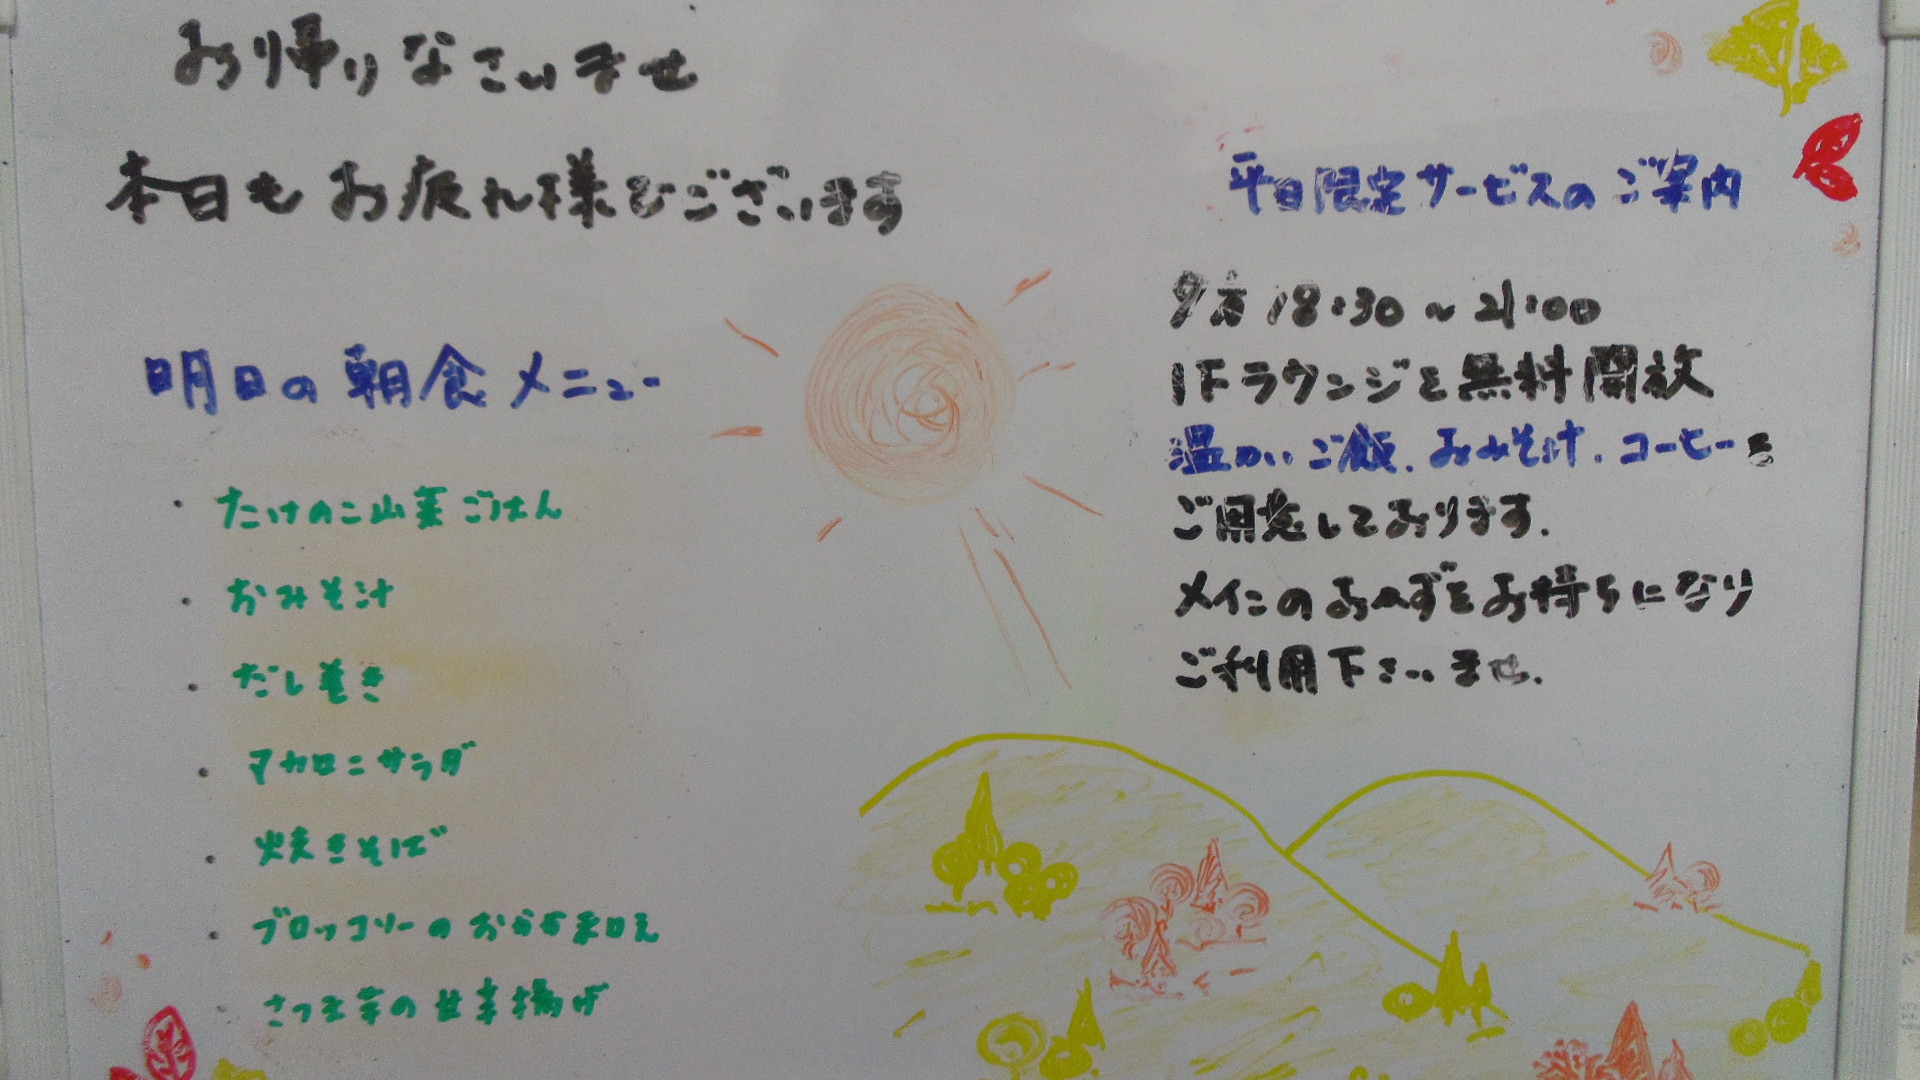 お帰りなさいませ
本日もお疲れ様でございます
明日の朝食メニュー
・たけのこ山菜ごはん
・おみそ汁
・だし巻き
・マカロニサラダ
・焼きそば
・ブロッコリーのおかか和え
・さつま芋の甘辛揚げ
平日限定サービスのご案内
夕方 18:30～21:00
1Fラウンジを無料開放
温かいご飯、おみそ汁、コーヒーを
ご用意しております。
メインのおかずをお持ちになり
ご利用下さいませ。